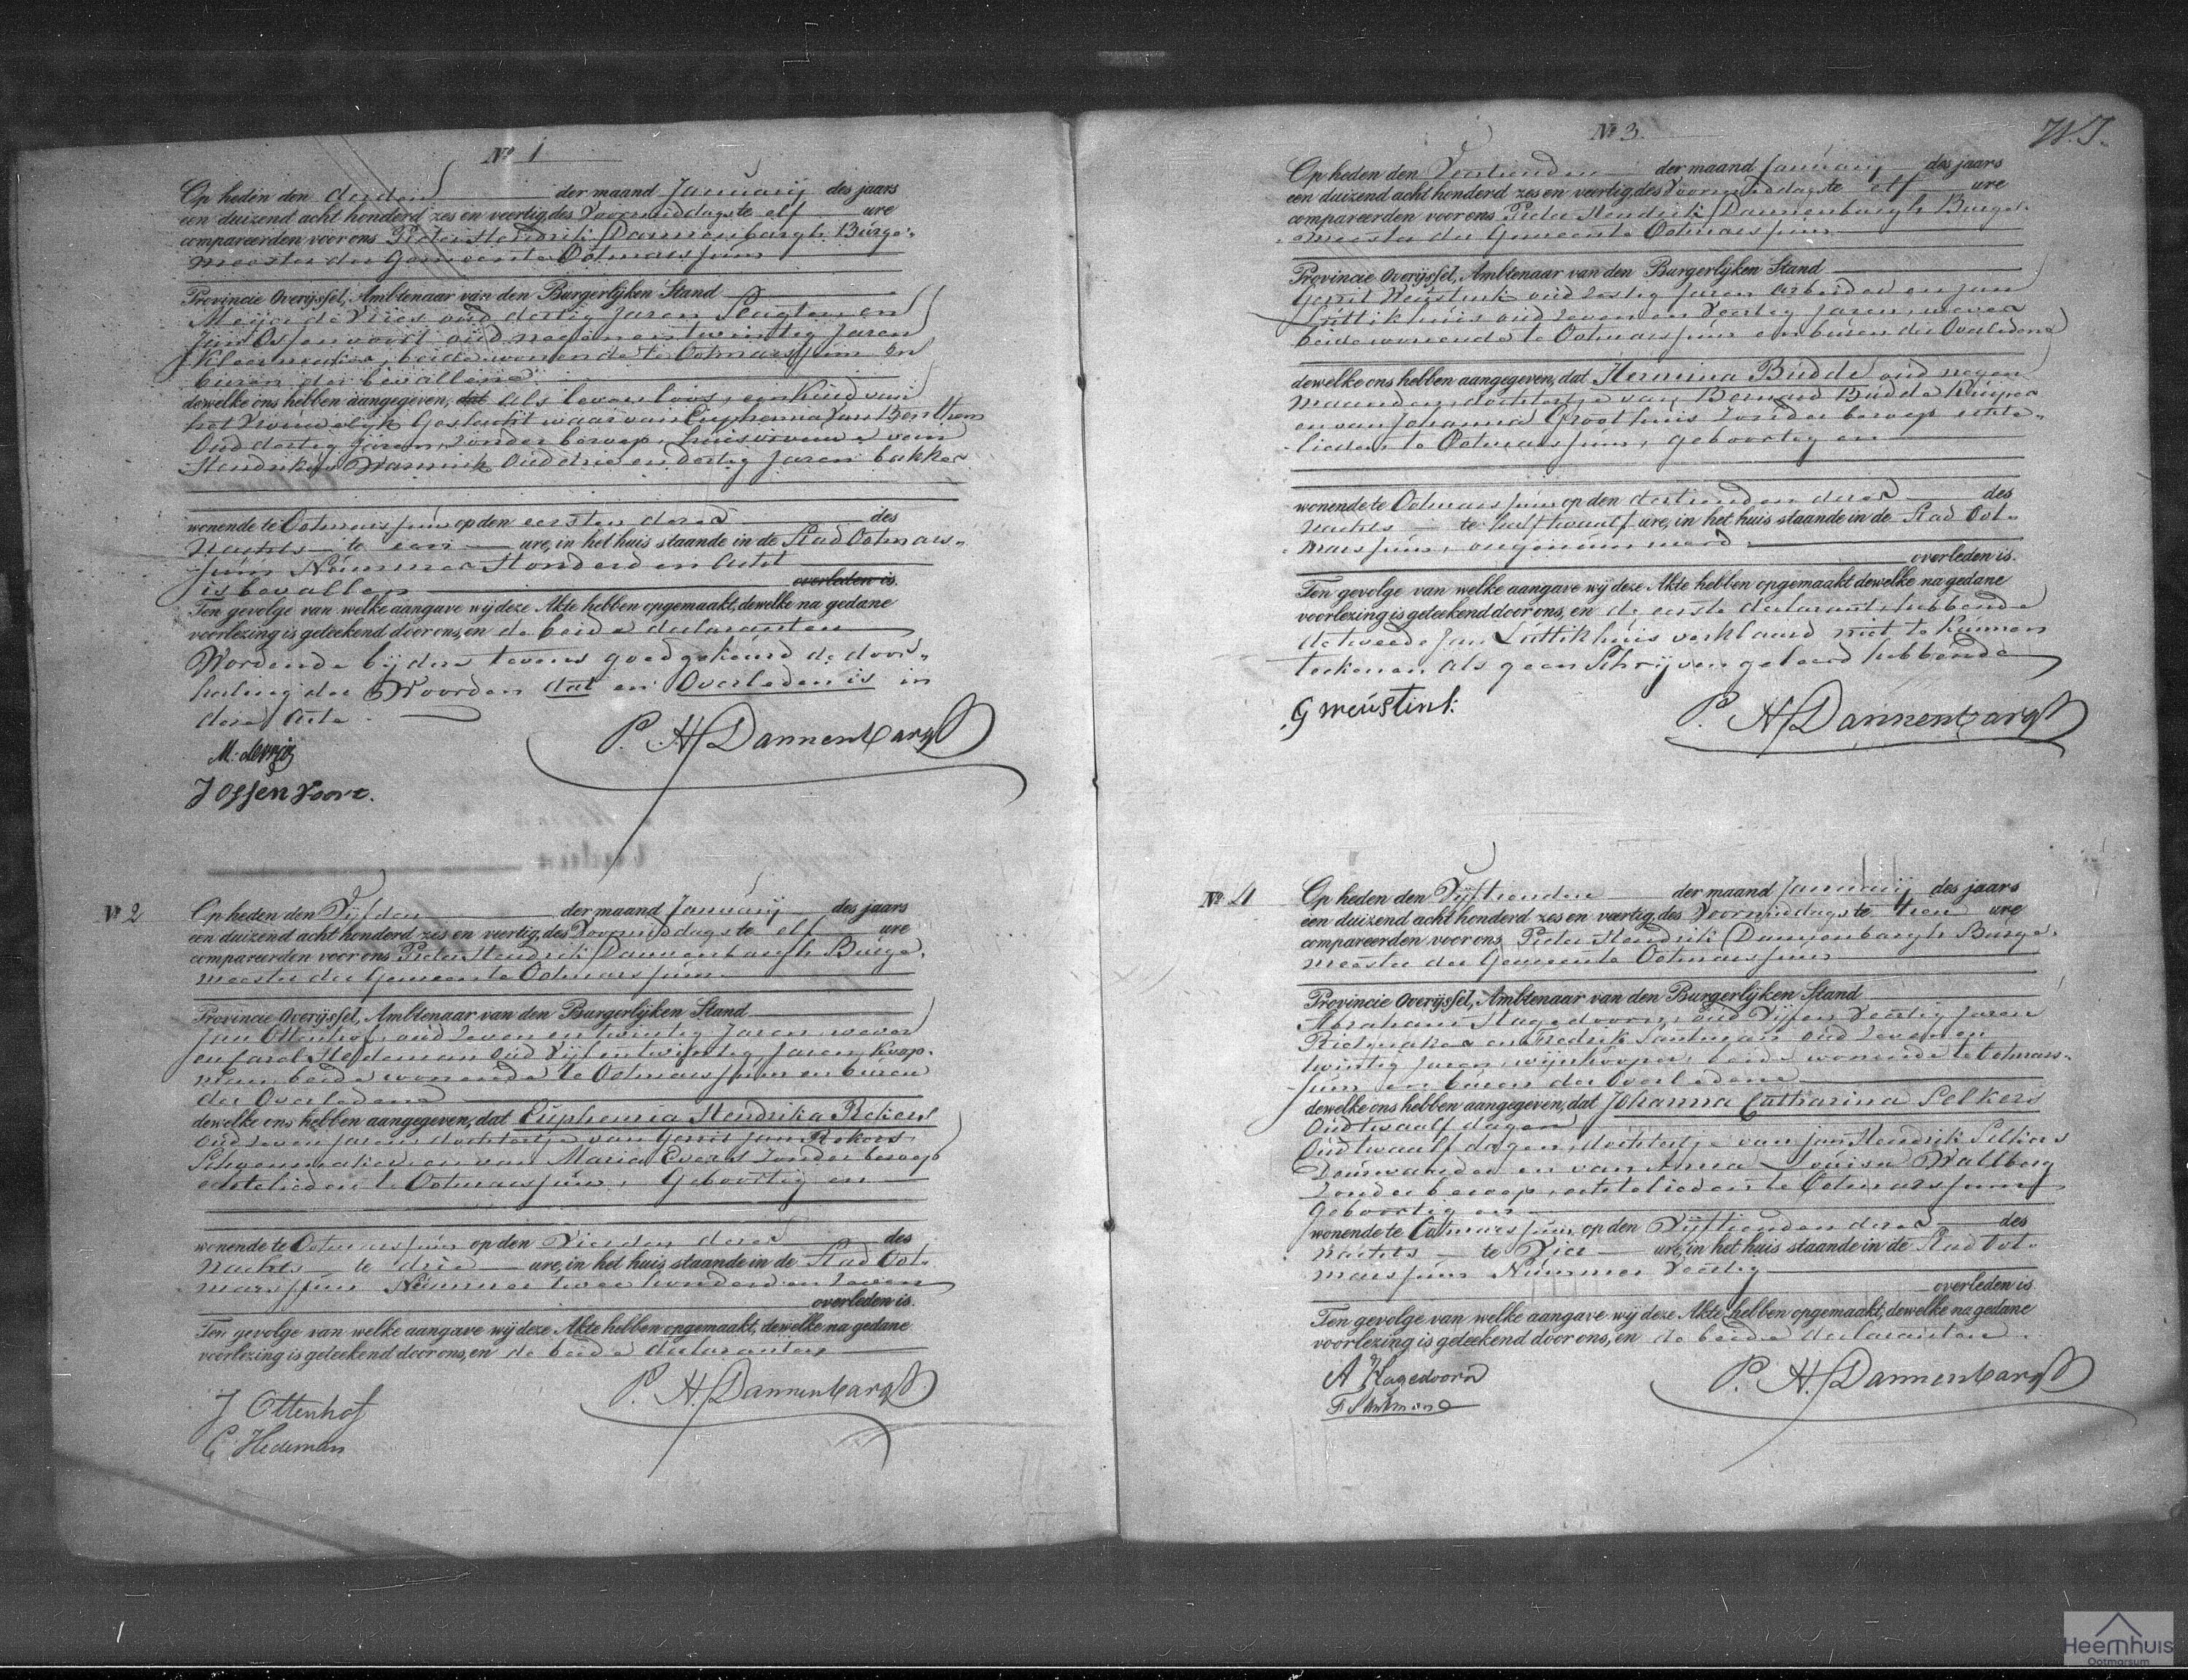 Nº 1
Op heden den derden der maand Januarij des jaars
een duizend acht honderd zes en veertig, des Voormiddags te elf ure
compareerden voor ons Pieter Hendrik Dannenbargh Burge-
meester der Gemeente Ootmarssum
Provincie Overijssel, Ambtenaar van den Burgerlijken Stand
Meijer de Vries oud dertig Jaren Slagter en
Jan Ossenvoort oud negen en twintig Jaren
Kleermaker, beide wonende te Ootmarssum en
buren der bevallene
dewelke ons hebben aangegeven, dat als levenloos, een Kind van
het Vrouwelijk Geslacht waarvan Euphemia Van Benthem
Oud dertig Jaren, zonder beroep, huisvrouw van
Hendrikus Wannink Oud drie en dertig Jaren bakker
wonende te Ootmarssum op den eersten dezer des
Nachts te een ure, in het huis staande in de Stad Ootmars-
sum Nummer Honderd en Acht
is bevallen overleden is.
Ten gevolge van welke aangave wij deze Akte hebben opgemaakt, dewelke na gedane
voorlezing is geteekend door ons, en de beide declaranten
Wordende bij deze tevens goedgekeurd de door-
haling der Woorden dat en Overleden is in
deze Acte
M. de Vries
P. H. Dannenbargh
J Ossenvoort.
Nº 2
Op heden den Vijfden der maand Januarij des jaars
een duizend acht honderd zes en veertig, des Voormiddags te elf ure
compareerden voor ons Pieter Hendrik Dannenbargh Burge-
meester der Gemeente Ootmarssum
Provincie Overijssel, Ambtenaar van den Burgerlijken Stand
Jan Ottenhof, oud zeven en twintig Jaren wever
en Carel Hedeman oud Vijf en twintig Jaren, Koop-
man beide wonende te Ootmarssum en buren
der Overledene
dewelke ons hebben aangegeven, dat Euphemia Hendrika Rekers
Oud zeven Jaren, dochtertje van Gerrit Jan Rekers
Schoenmaker en van Maria Evers Zonder beroep
echtelieden te Ootmarssum, Geboortig en
wonende te Ootmarssum op den Vierden dezer des
Nachts te drie ure, in het huis staande in de Stad Oot-
marssum Nummer twee honderd en zeven
overleden is.
Ten gevolge van welke aangave wij deze Akte hebben opgemaakt, dewelke na gedane
voorlezing is geteekend door ons, en de beide declaranten
J Ottenhof
P. H. Dannenbargh
C Hedeman
Nº 3.
Op heden den Veertienden der maand Januarij des jaars
een duizend acht honderd zes en veertig, des Voormiddags te elf ure
compareerden voor ons Pieter Hendrik Dannenbargh Burge-
meester der Gemeente Ootmarssum
Provincie Overijssel, Ambtenaar van den Burgerlijken Stand
Gerrit Meustink oud zestig Jaren Arbeider en Jan
Luttikhuis oud zeven en Veertig Jaren, wever
beide wonende te Ootmarssum en buren der Overledene
dewelke ons hebben aangegeven, dat Hermina Budde oud negen
maanden, dochtertje van Bernard Budde Kuiper
en van Johanna Groothuis Zonder beroep echte-
lieden te Ootmarssum, geboortig en
wonende te Ootmarssum op den dertienden dezer des
Nachts te half twaalf ure, in het huis staande in de Stad Oot-
marssum, ongenummerd
overleden is.
Ten gevolge van welke aangave wij deze Akte hebben opgemaakt dewelke na gedane
voorlezing is geteekend door ons, en de eerste declarant, hebbende
de tweede Jan Luttikhuis verklaard niet te Kunnen
teekenen als geen Schrijven geleerd hebbende
G meustink
P. H. Dannenbargh
Nº 4
Op heden den Vijftienden der maand Januarij des jaars
een duizend acht honderd zes en veertig, des Voormiddags te tien ure
compareerden voor ons Pieter Hendrik Dannenbargh Burge-
meester der Gemeente Ootmarssum
Provincie Overijssel, Ambtenaar van den Burgerlijken Stand
Abraham Hagedoorn, oud Vijf en Veertig Jaren
Rietmaker en Fredrik Santman Oud zeven en
twintig Jaren, wijnkooper, beide wonende te Ootmars-
sum en buren der Overledene
dewelke ons hebben aangegeven, dat Johanna Catharina Selkers
Oud twaalf dagen
Oud twaalf dagen, dochtertje van Jan Hendrik Selkers
Deurwaarder en van Anna Louisa Wallberg
Zonder beroep, echtelieden te Ootmarssum
Geboortig en
wonende te Ootmarssum op den Vijftienden dezer des
Nachts te Vier ure, in het huis staande in de Stad Oot-
marssum Nummer Veertig
overleden is.
Ten gevolge van welke aangave wij deze Akte hebben opgemaakt, dewelke na gedane
voorlezing is geteekend door ons, en de beide declaranten
A Hagedoorn
P. H. Dannenbargh
F Santman
Heemhuis
Ootmarsum